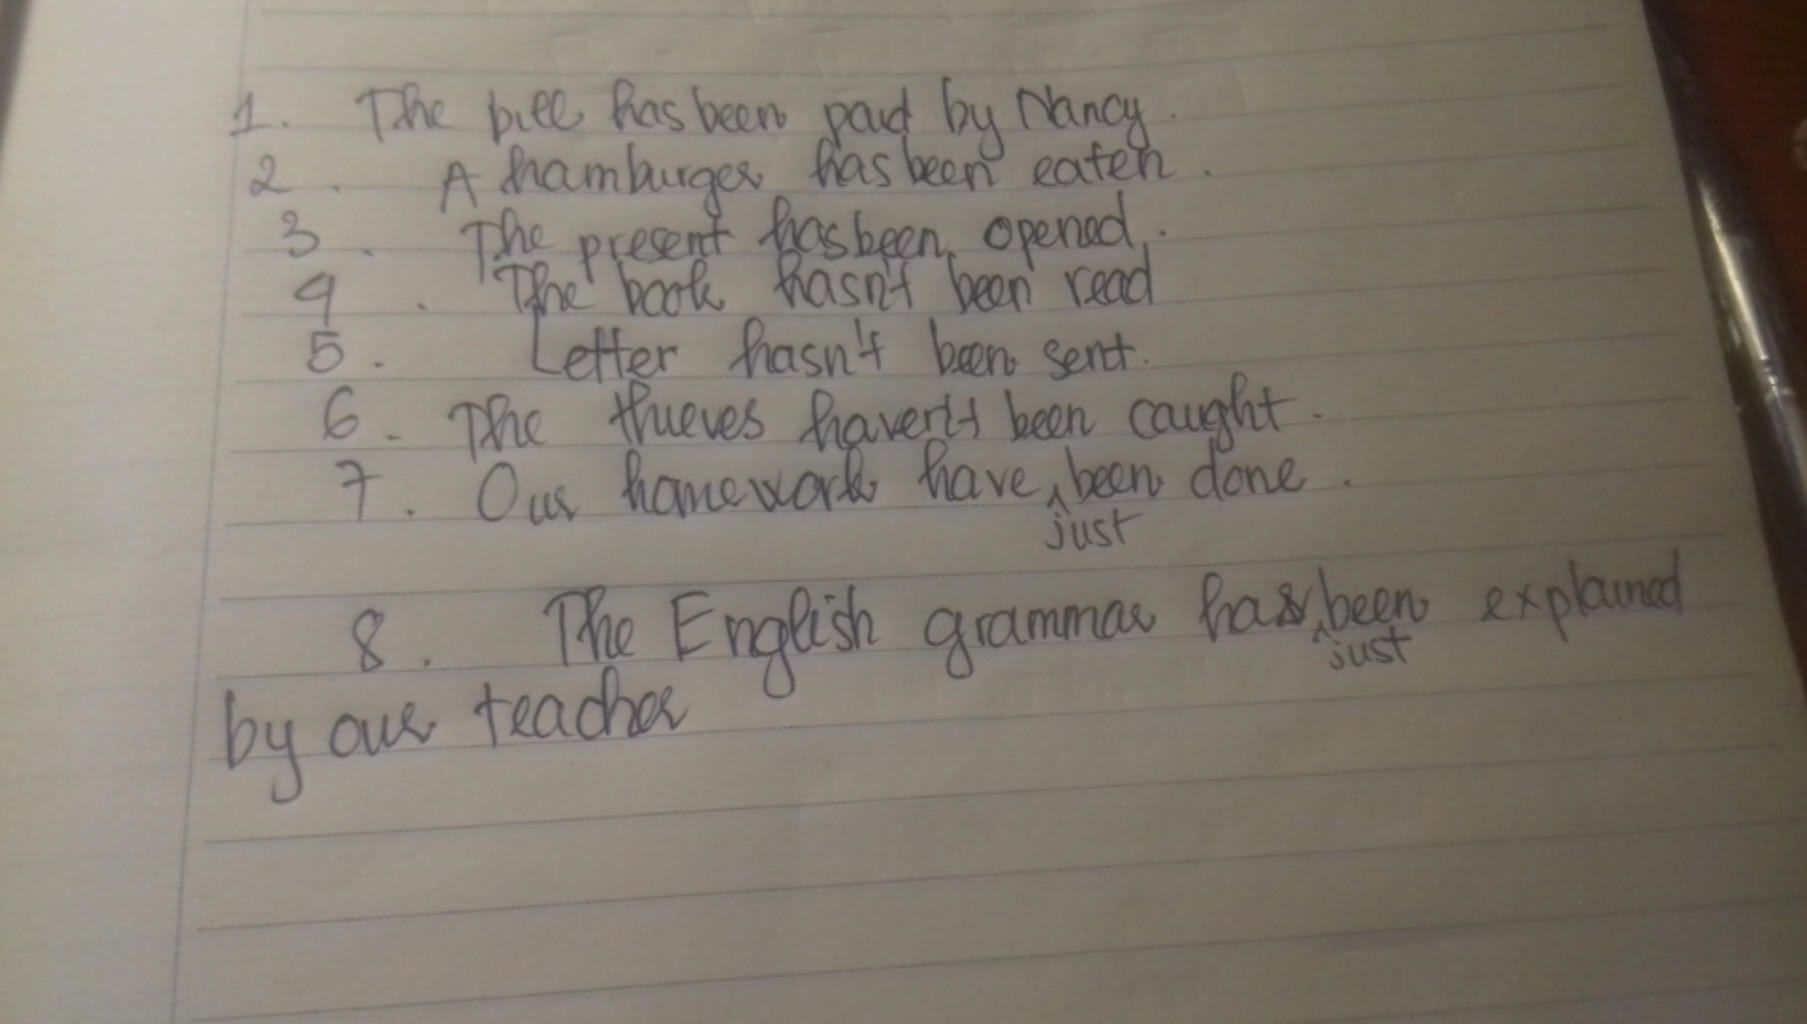 1. The bill has been paid by Nancy.
2. A hamburger has been eaten.
3. The present has been opened.
4. The book hasn't been read
5. Letter hasn't been sent.
6. The thieves haven't been caught.
7. Our homework have just been done.
8. The English grammar has just been explained
by our teacher